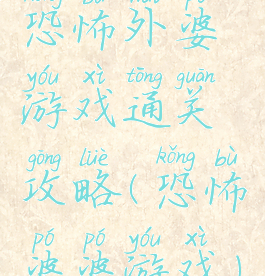 kǒng bù wài pó
恐怖外婆
yóu xì tōng guān
游戏通关
gōng lüè kǒng bù
攻略(恐怖
pó pó yóu xì
婆婆游戏)